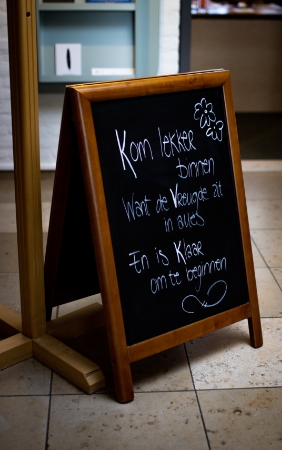 Kom lekker
binnen
Want de Vreugde zit
in alles
En is Klaar
om te beginnen